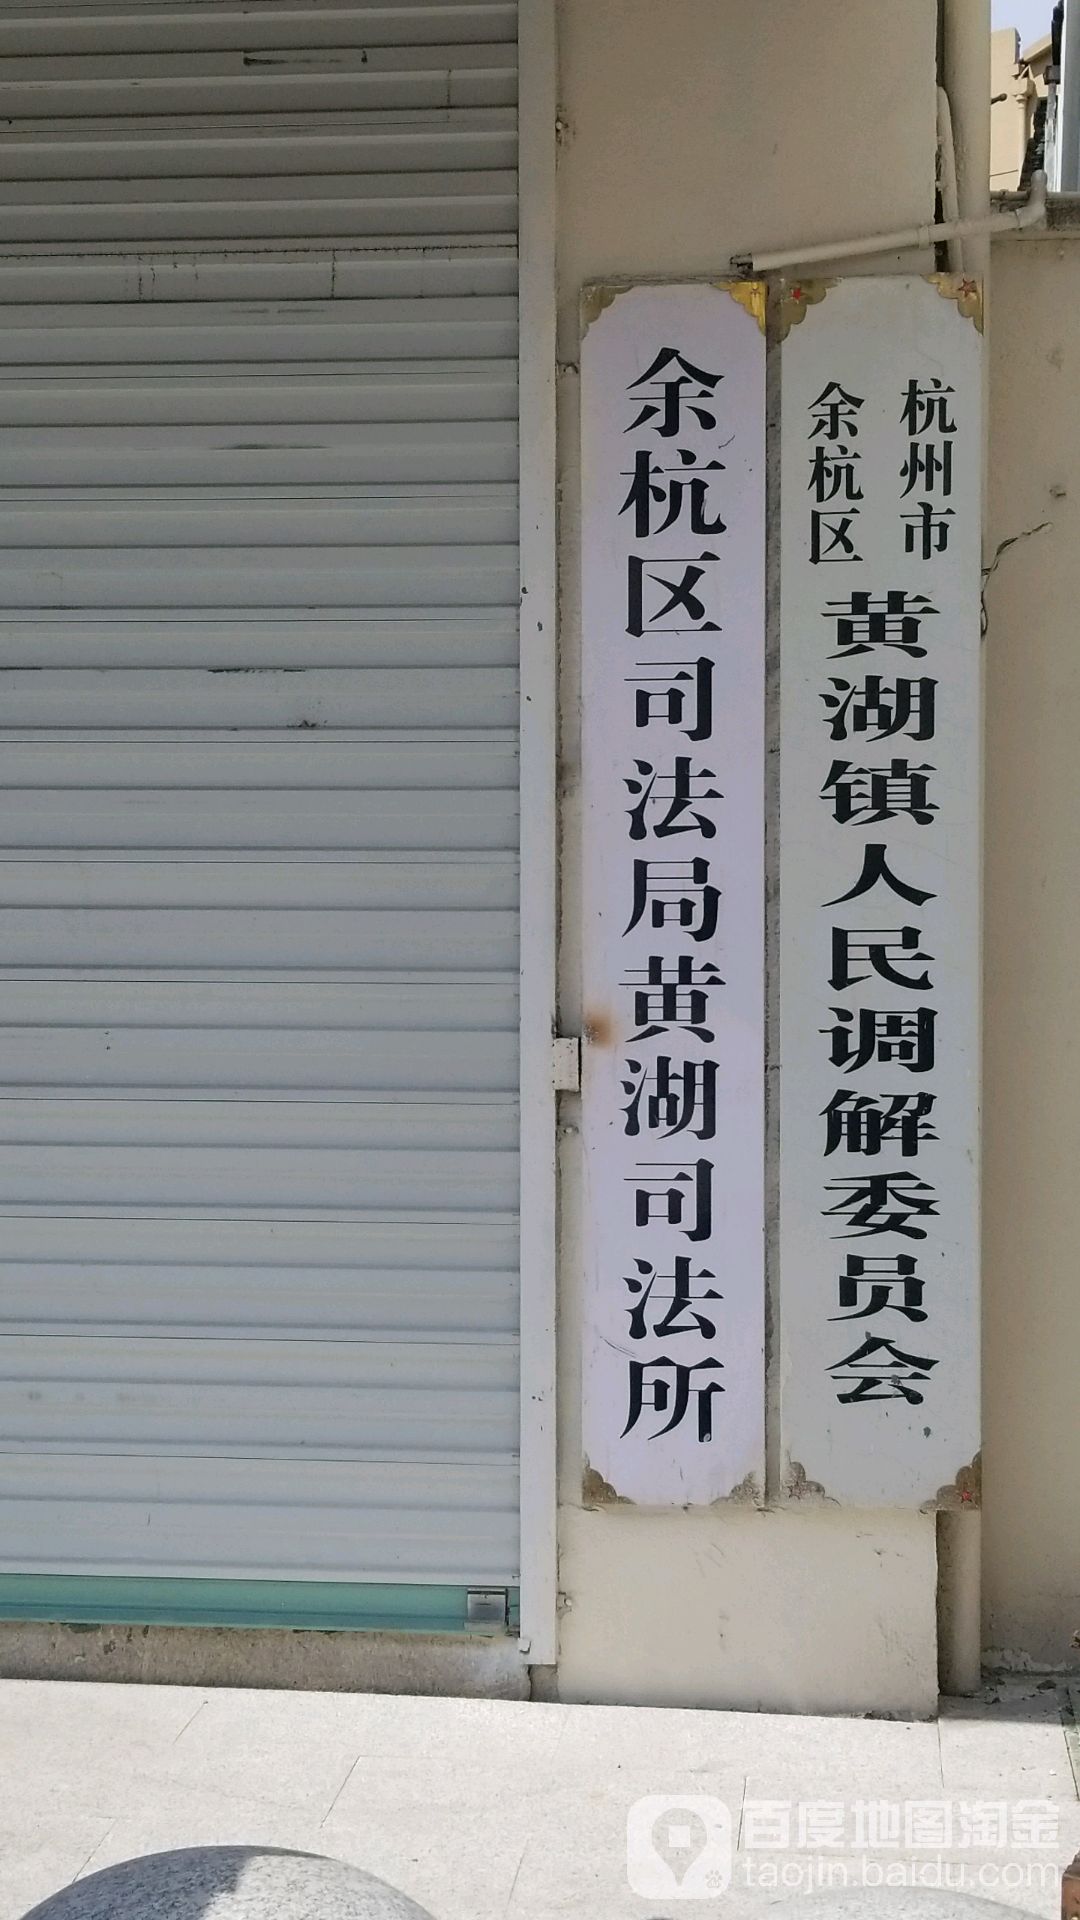 杭州市
余杭区
黄湖镇人民调解委员会
余杭区司法局黄湖司法所
百度地图淘金
taojin.baidu.com